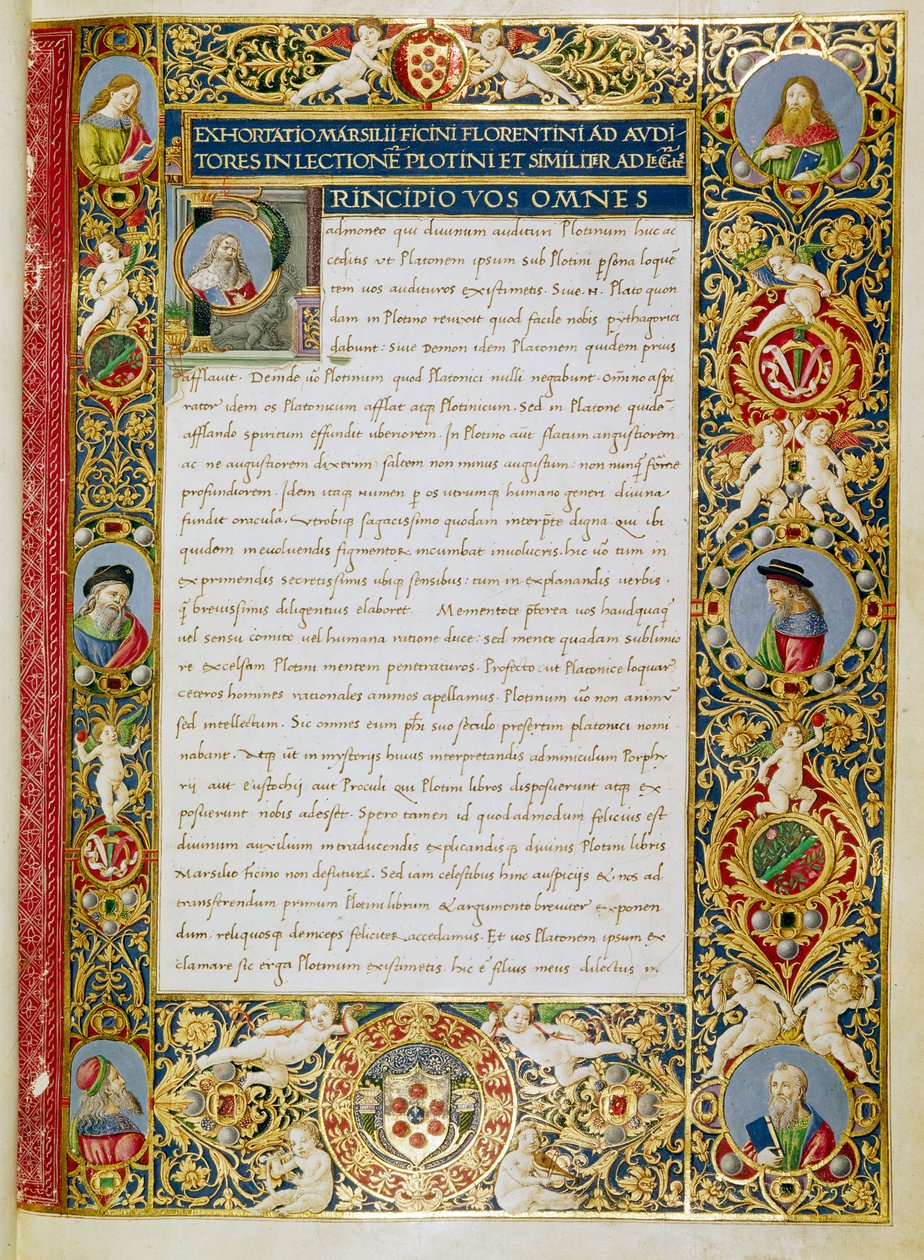 EXHORTATIO MARSILII FICINI FLORENTINI AD AVDI-
TORES IN LECTIONĒ PLOTINI ET SIMILITER AD
PRINCIPIO VOS OMNES
admoneo qui diuinum audituri Plotinum huc ac
ceditis ut Platonem ipsum sub Plotini p̱sona loquē
tem vos audituros existimetis. Siue .N. Plato quon
dam in Plotino reuixit quod facile nobis pythagorici
dabunt: Siue Demon idem Platonem quidem prius
afflauit. Deinde ūo Plotinum quod Platonici nulli negabunt. Omīno aspi
rator idem os Platonicum afflat atq; Plotinicum. Sed in Platone quidē
afflando spiritum effundit uberiorem. In Plotino aūt flatum angustiorem.
ac ne augustiorem dixerim saltem non minus augustum: non nunq̄
profundiorem. Idem itaq; Numen p̱ os utrumq; humano generi diuina
fundit oracula. Vtrobiq; sagacissimo quodam interp̄te digna. Qui ibi
quidem in euoluendis figmentoꝝ incumbat inuolucris. hic ūo tum in
exprimendis secretissimis ubiq; sensibus: tum in explanandis uerbis.
q̄ breuissimis diligentius elaboret. Mementote p̄terea uos haudquaq̄
uel sensu comite uel humana ratione duce: sed mente quadam sublimio
re excelsam Plotini mentem penetraturos. Profecto ut Platonice loquar
ceteros homines rationales animos apellamus. Plotinum ūo non animū
sed intellectum. Sic omnes eum ph̄i suo seculo presertim platonici nomi
nabant. Atq; ut̄ in mysterijs huius interpretandis adminiculum Porphy
rij aut Eustochij aut Proculi Qui Plotini libros disposuerunt atq; ex
posuerunt nobis adesset. Spero tamen id quodadmodum felicius est
diuinum auxilium in traducendis explicandisq; diuinis Plotini libris
Marsilio Ficino non defuturꝫ. Sed iam celestibus hinc auspicijs & nos ad
transferendum primum Plotini librum & argumento breuiter exponen
dum: reliquosq; deinceps feliciter accedamus. Et uos Platonem ipsum ex
clamare sic erga Plotinum existimetis. hic ē filius meus dilectus in